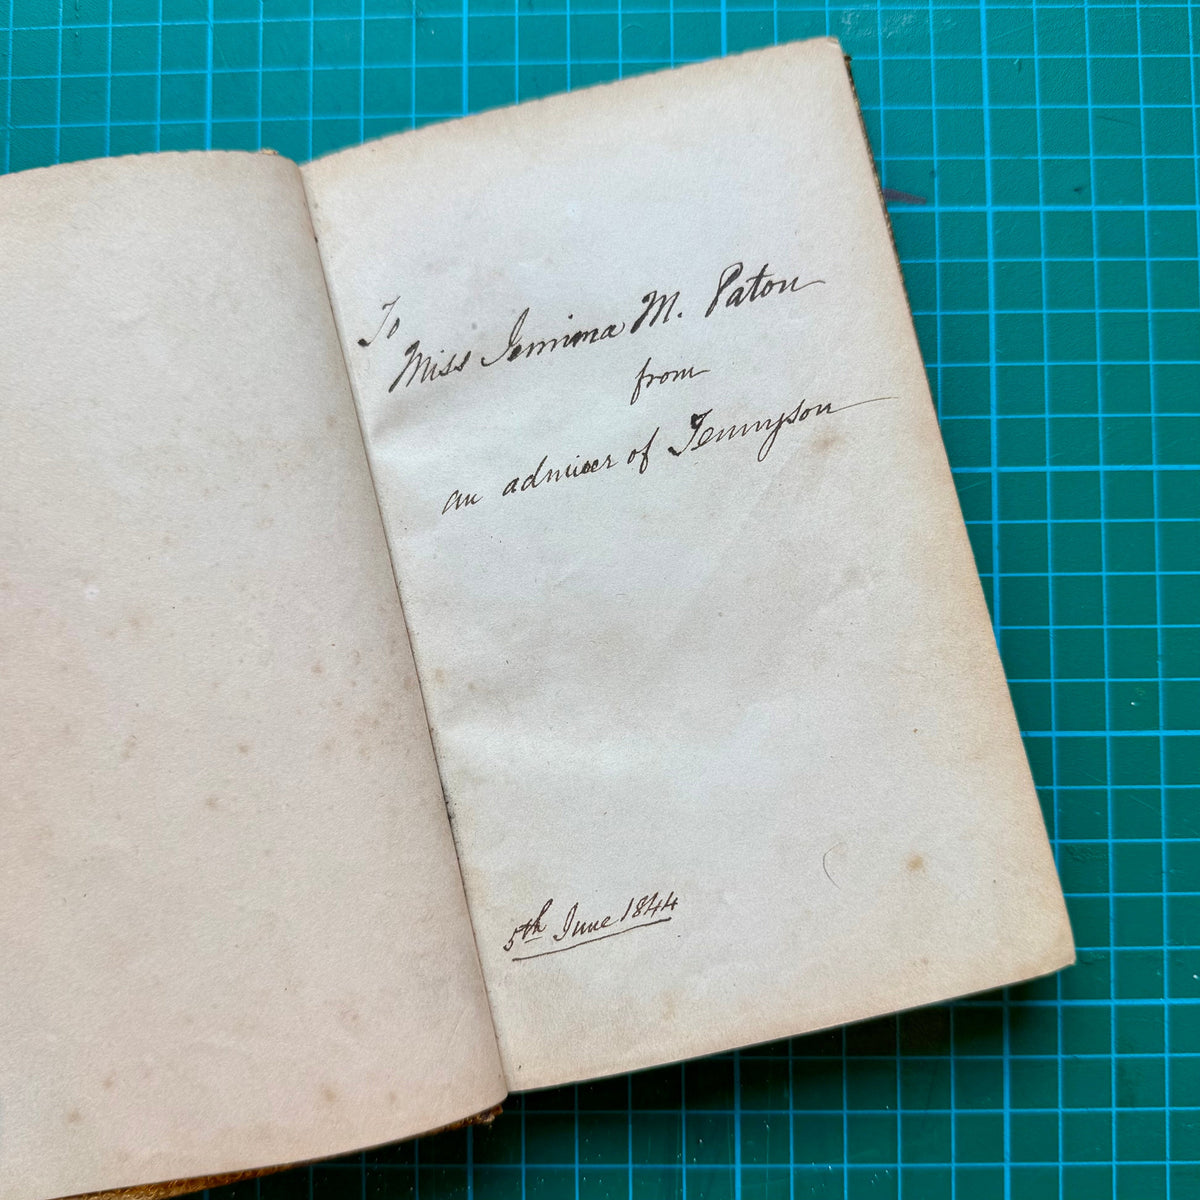 To
Miss Jemima M. Paton
from
an admirer of Tennyson
5th June 1844